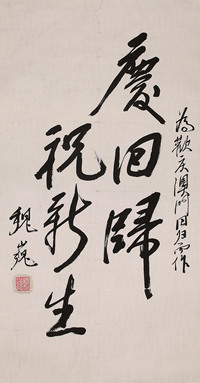 為歡慶澳門回归而作
慶回歸
祝新生
魏巍